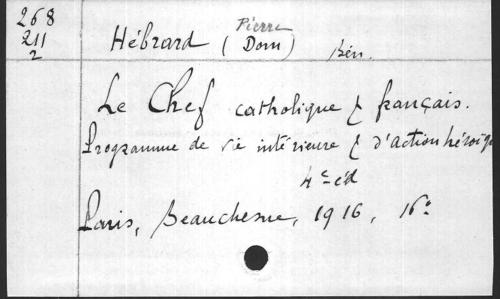 268
211
2
Pierre
Hébrard (Dom) Bén.
Le Chef catholique & français.
Programme de vie intérieure & d'action héroïq
4e éd
Paris, Beauchesne, 1916, 16°